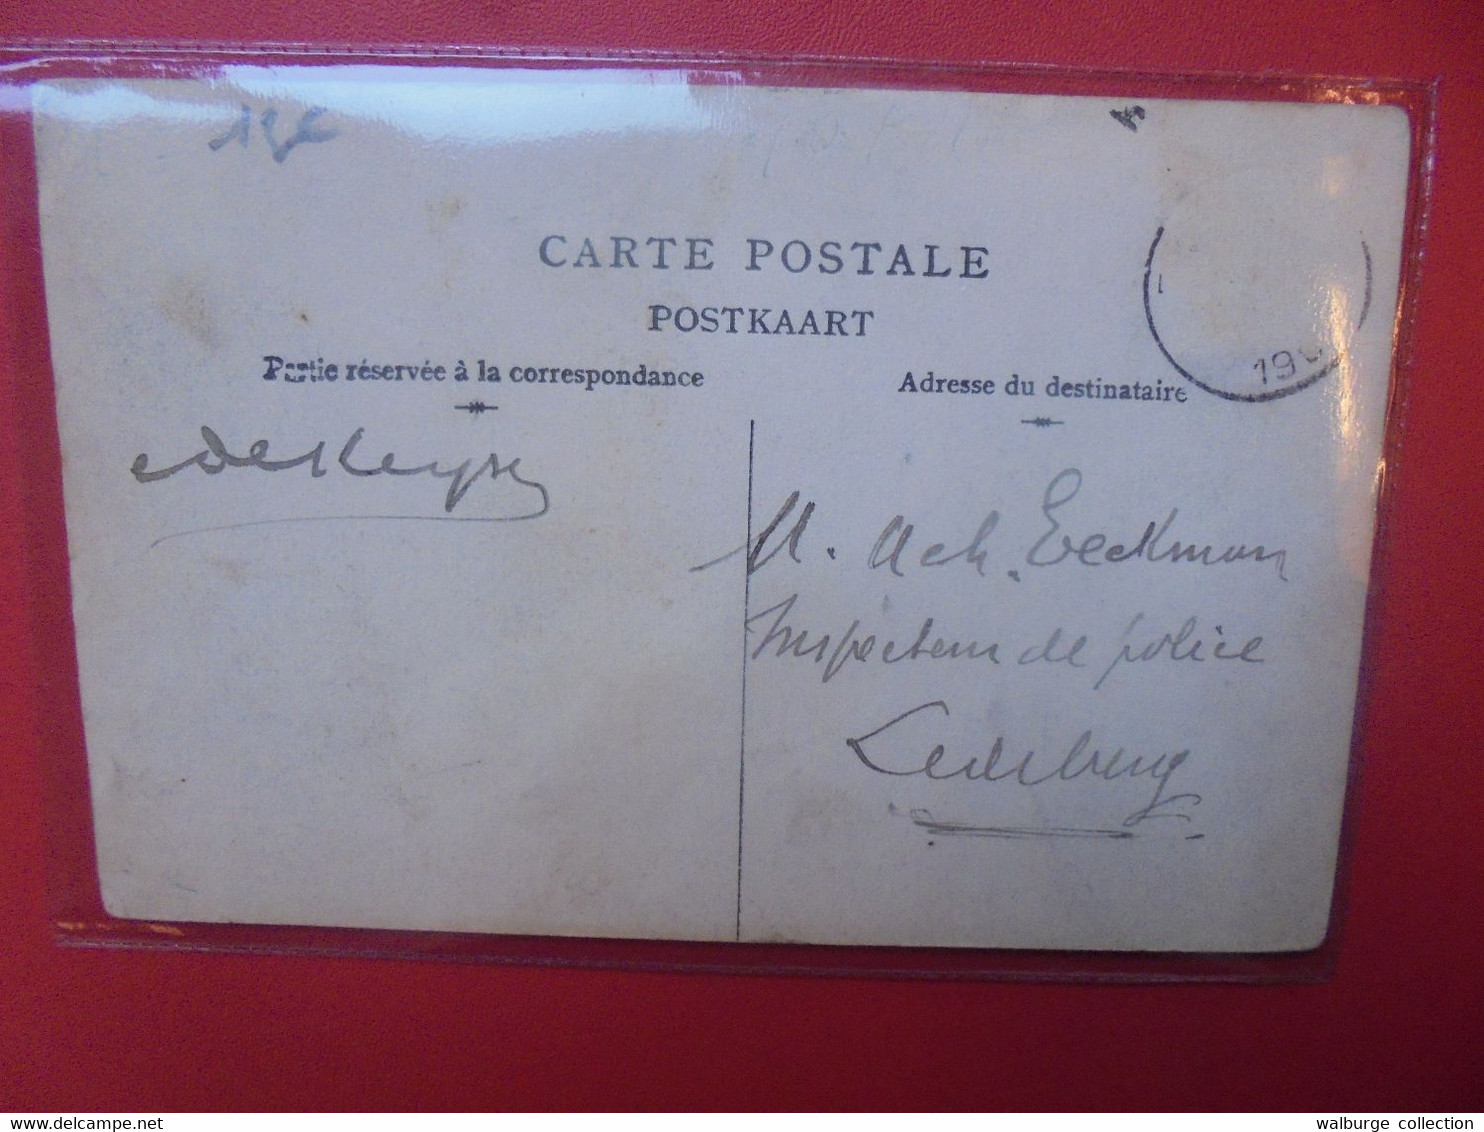 CARTE POSTALE
POSTKAART
Partie réservée à la correspondance
Adresse du destinataire
190
DeKeyser
M. Ach. Eeckman
Inspecteur de police
Ledeberg
walburge collection